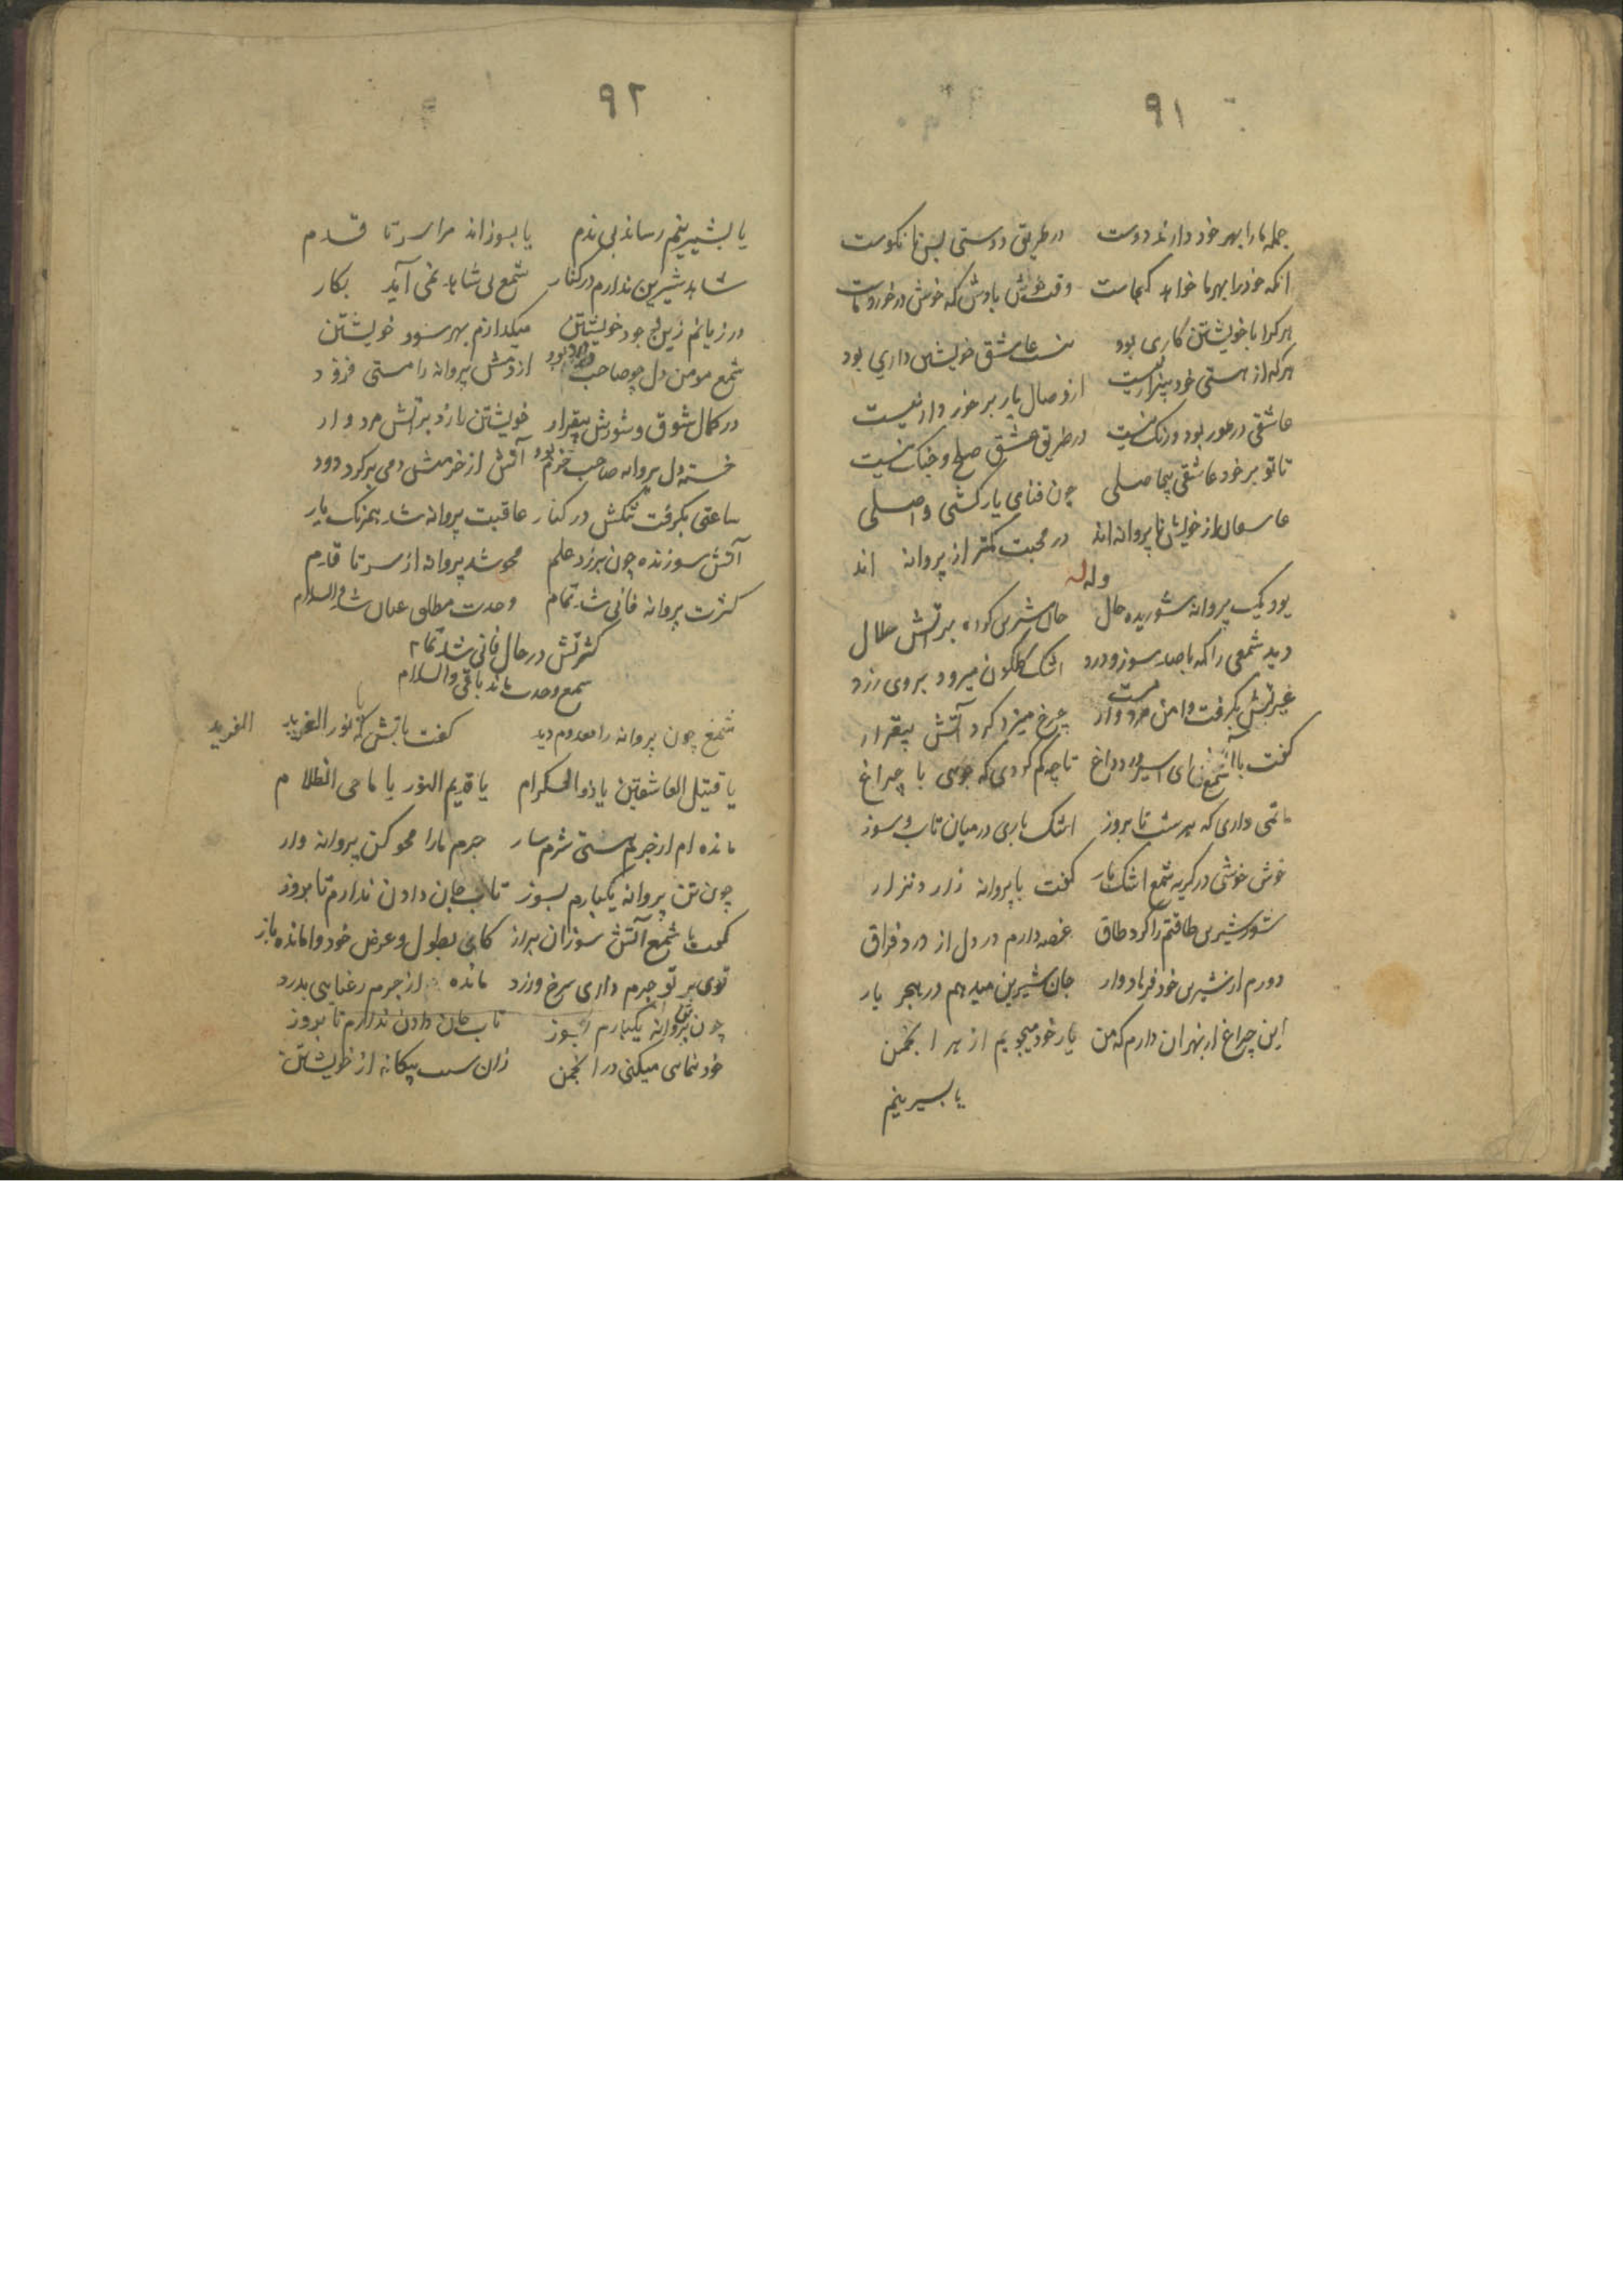 ۹۱
جمله ما را بهر خود دارند دوست در طریق دوستی بس نا نکوست
انکه خود را بهر ما خواهد کجاست وقت خوش بادش که خوش در خورد ماست
هر کرا با خویشتن کاری بود نیست عاشق خویشتن داری بود
هر که از هستی خود بیزار نیست از وصال یار برخوردار نیست
عاشقی در عور بود و رنک نیست در طریق عشق صلح و جنک نیست
تا تو بر خود عاشقی بیحاصلی چون فنای یار کشتی واصلی
عاشقان از خویش تا پروانه اند در محبت کمتر از پروانه اند
وله
بود یک پروانه شوریده حال جان شیرین کرده بر آتش حلال
دید شمعی را که با صد سوز و درد اشک کلکون میرود بر روی زرد
غیرتش بکرفت دامن مرد وار چرخ میزد کرد آتش بیقرار
کفت با شمع ای اسیر درد و داغ تا چه کم کردی که جویی با چراغ
ماتمی داری که هر شب تا بروز اشک باری در میان تاب و سوز
خوش خوشی در کریه شمع اشک بار کفت با پروانه زار و نزار
شور شیرین طاقتم را کرد طاق غصه دارم در دل از درد فراق
دورم از شیرین خود فرهاد وار جان شیرین میدهم در هجر یار
این چراغ از بهر ان دارم که من یار خود میجویم از هر انجمن
یا بشیرینم
۹۲
یا بشیرینم رساند بی ندم یا بسوزاند مرا سر تا قدم
شاهد شیرین ندارم در کنار شمع بی شاهد نمی آید بکار
در زیانم زین وجود خویشتن میکدازم بهر سود خویشتن
شمع مومن دل چو صاحب درد بود از دمش پروانه را مستی فزود
در کمال شوق و شورش بیقرار خویشتن را زد بر آتش مرد وار
خسته دل پروانه صاحب خرم بود آتش از خرمنش دمی بر کرد دود
ساعتی بکرفت تنکش در کنار عاقبت پروانه شد همرنک یار
آتش سوزنده چون بر زد علم محو شد پروانه از سر تا قدم
کثرت پروانه فانی شد تمام وحدت مطلق عیان شد والسلام
کثرتش در حال فانی شد تمام
شمع وحدت ماند باقی والسلام
شمع چون پروانه را معدوم دید کفت با آتش که یا نور الفرید
یا قتیل العاشقین یا ذو الکرام یا قدیم النور یا ماحی الظلام
مانده ام از جرم هستی شرم سار جرم ما را محو کن پروانه وار
چون تن پروانه یکبارم بسوز تاب جان دادن ندارم تا بروز
کفت با شمع آتش سوزان براز کای بطول و عرض خود وامانده باز
توی بر تو جرم داری سرخ و زرد مانده از جرم رعنایی بدرد
چون تن پروانه یکبارم بسوز تاب جان دادن ندارم تا بروز
خود نمایی میکنی در انجمن زان سبب بیکانه از خویشتن